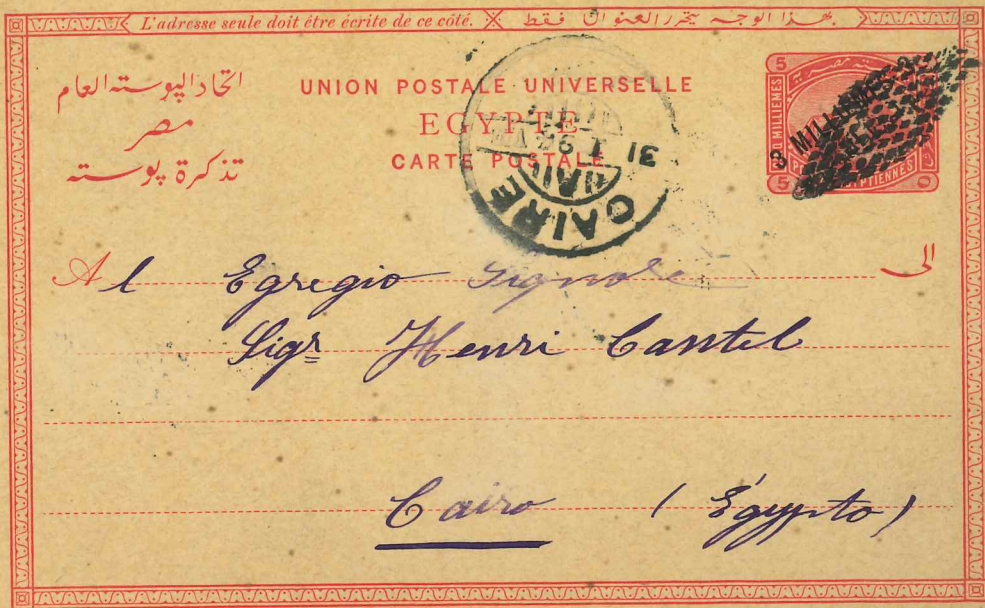 L'adresse seule doit être écrite de ce côté. بهذا الوجه يتحرر العنوان فقط
اتحاد البوسته العام
مصر
تذكرة بوسته
UNION POSTALE UNIVERSELLE
EGYPTE
CARTE POSTALE
5
5
5
3 MILLIEMES 3
CAIRE
31
Al Egregio Signore الى
Sigr Henri Cantel
Cairo (Égypto)